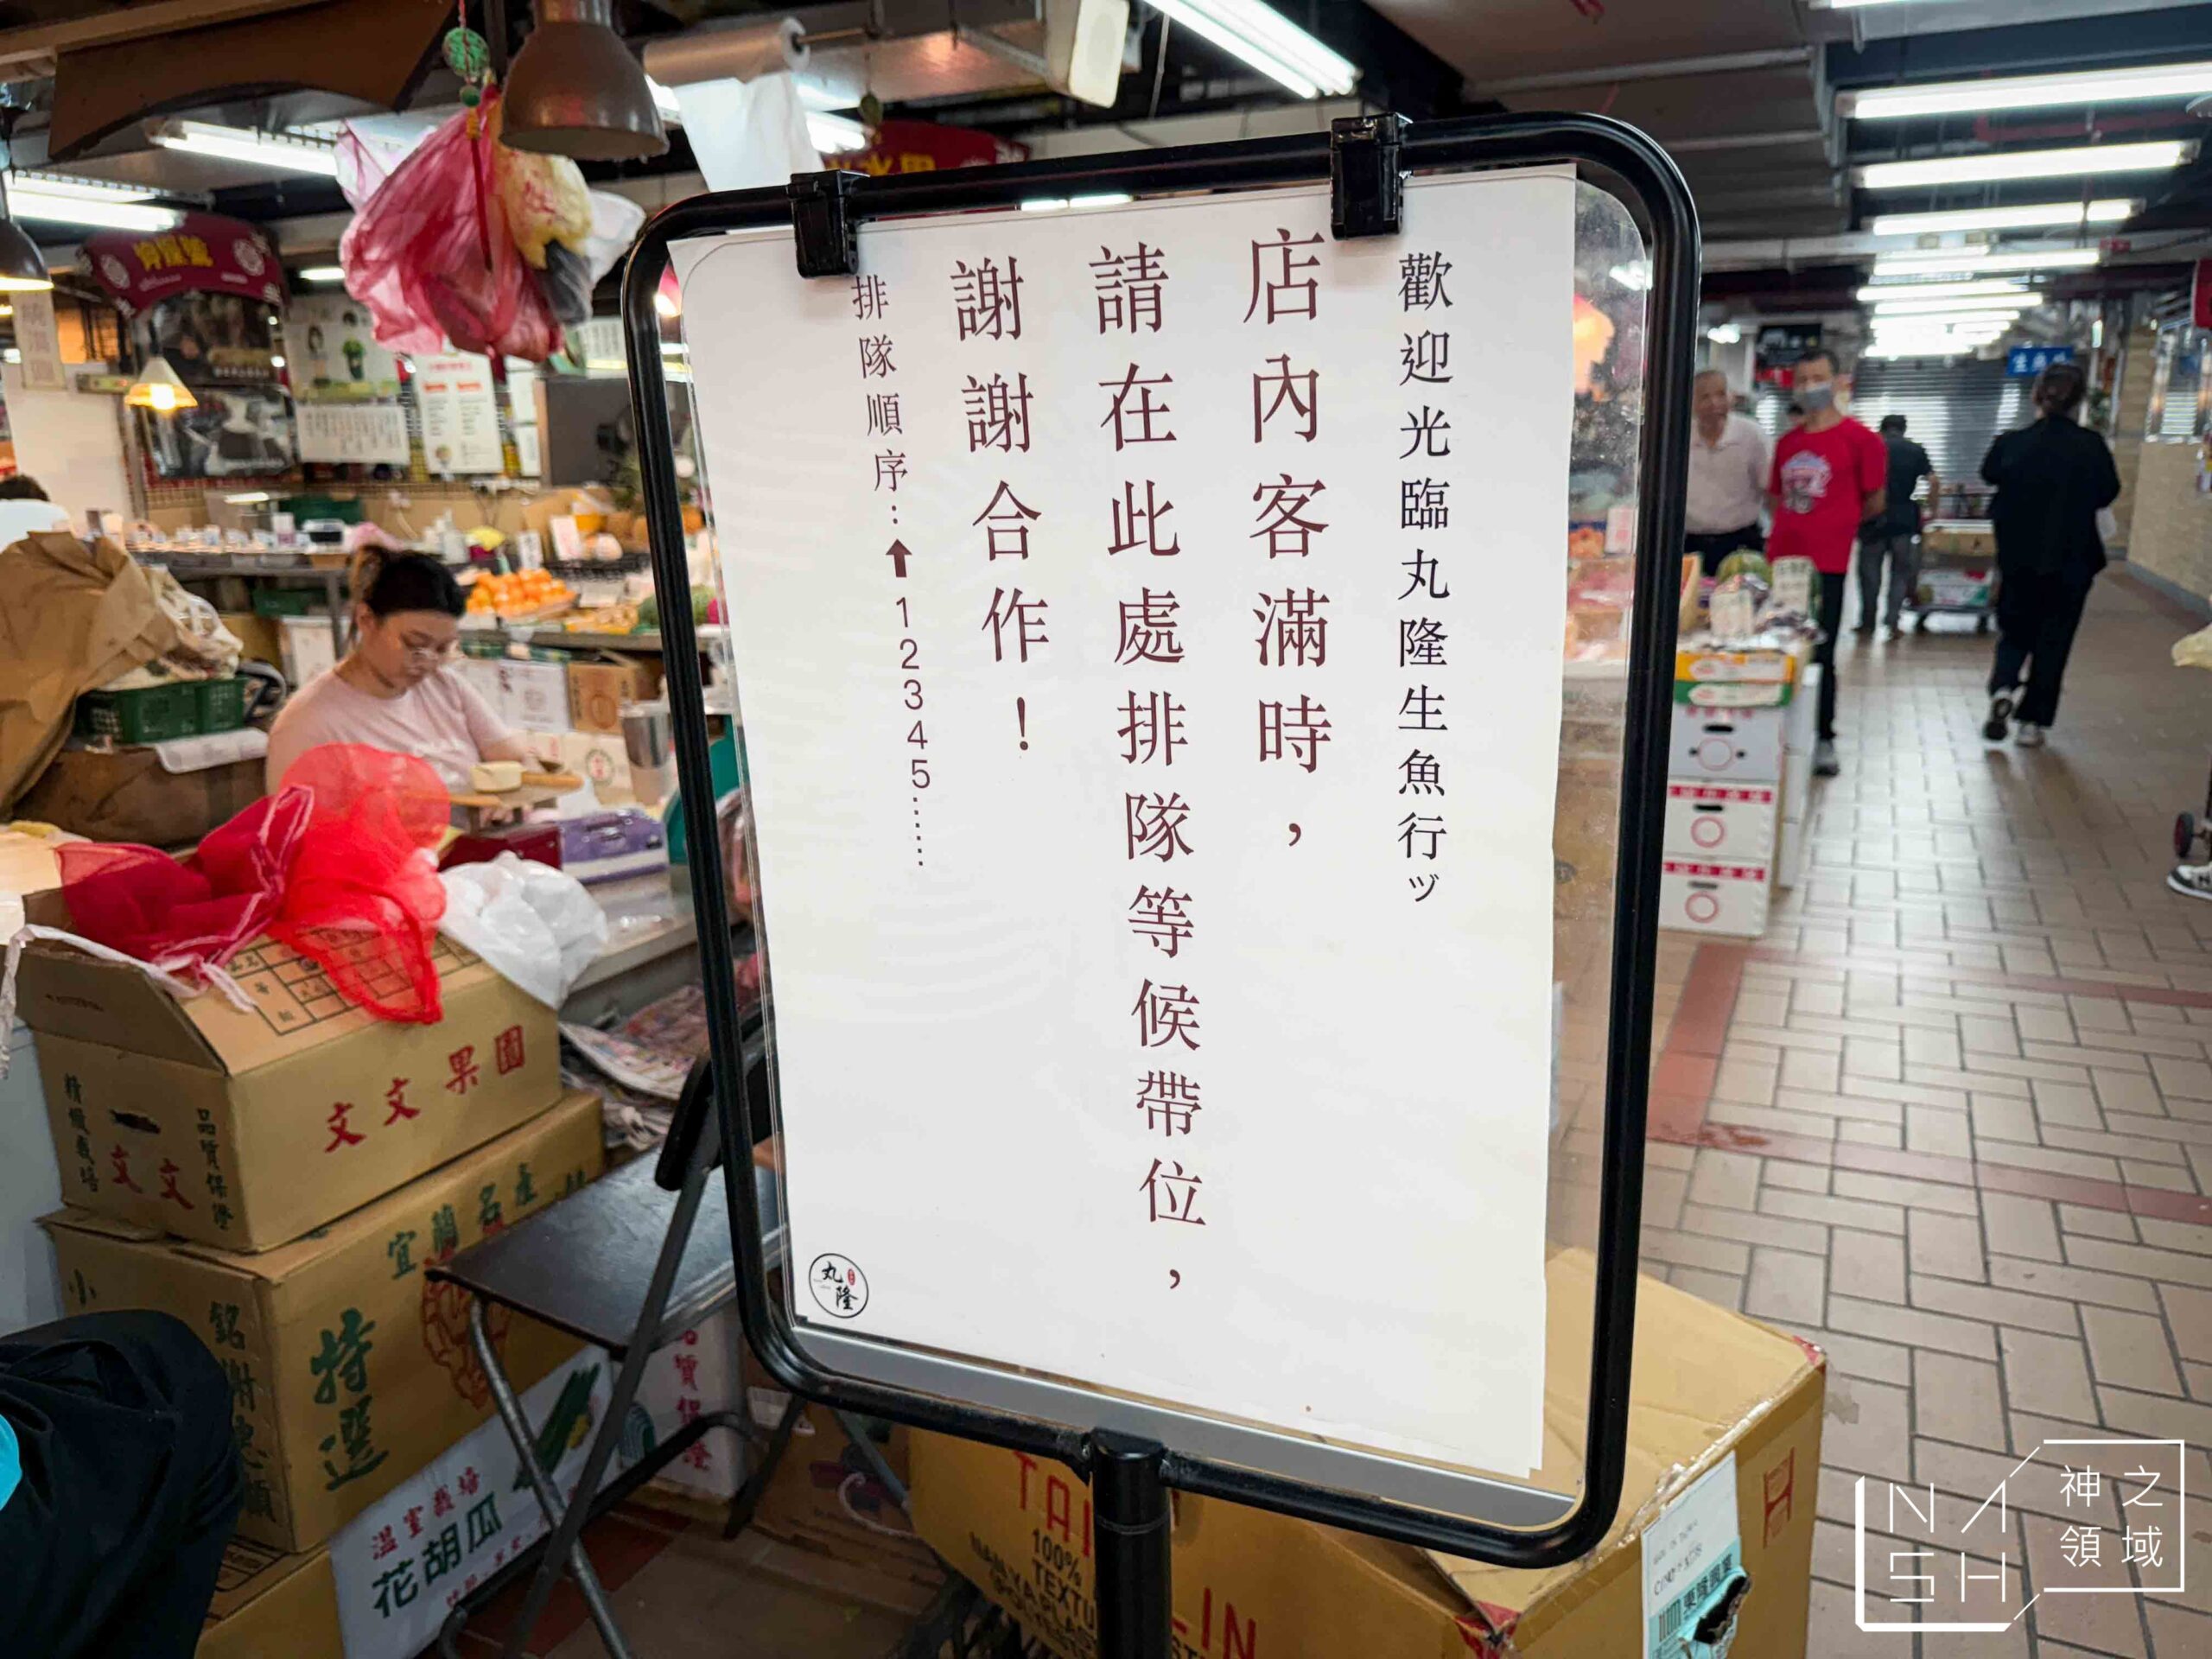 歡迎光臨丸隆生魚行ヅ
店內客滿時，
請在此處排隊等候帶位，
謝謝合作！
排隊順序：⬆12345……
丸隆
文文果園
精緻栽培
文文
品質保證
宜蘭名產
特選
銘謝惠顧
溫室栽培
花胡瓜
質保證
100%
TEXTU
NASH
神之領域